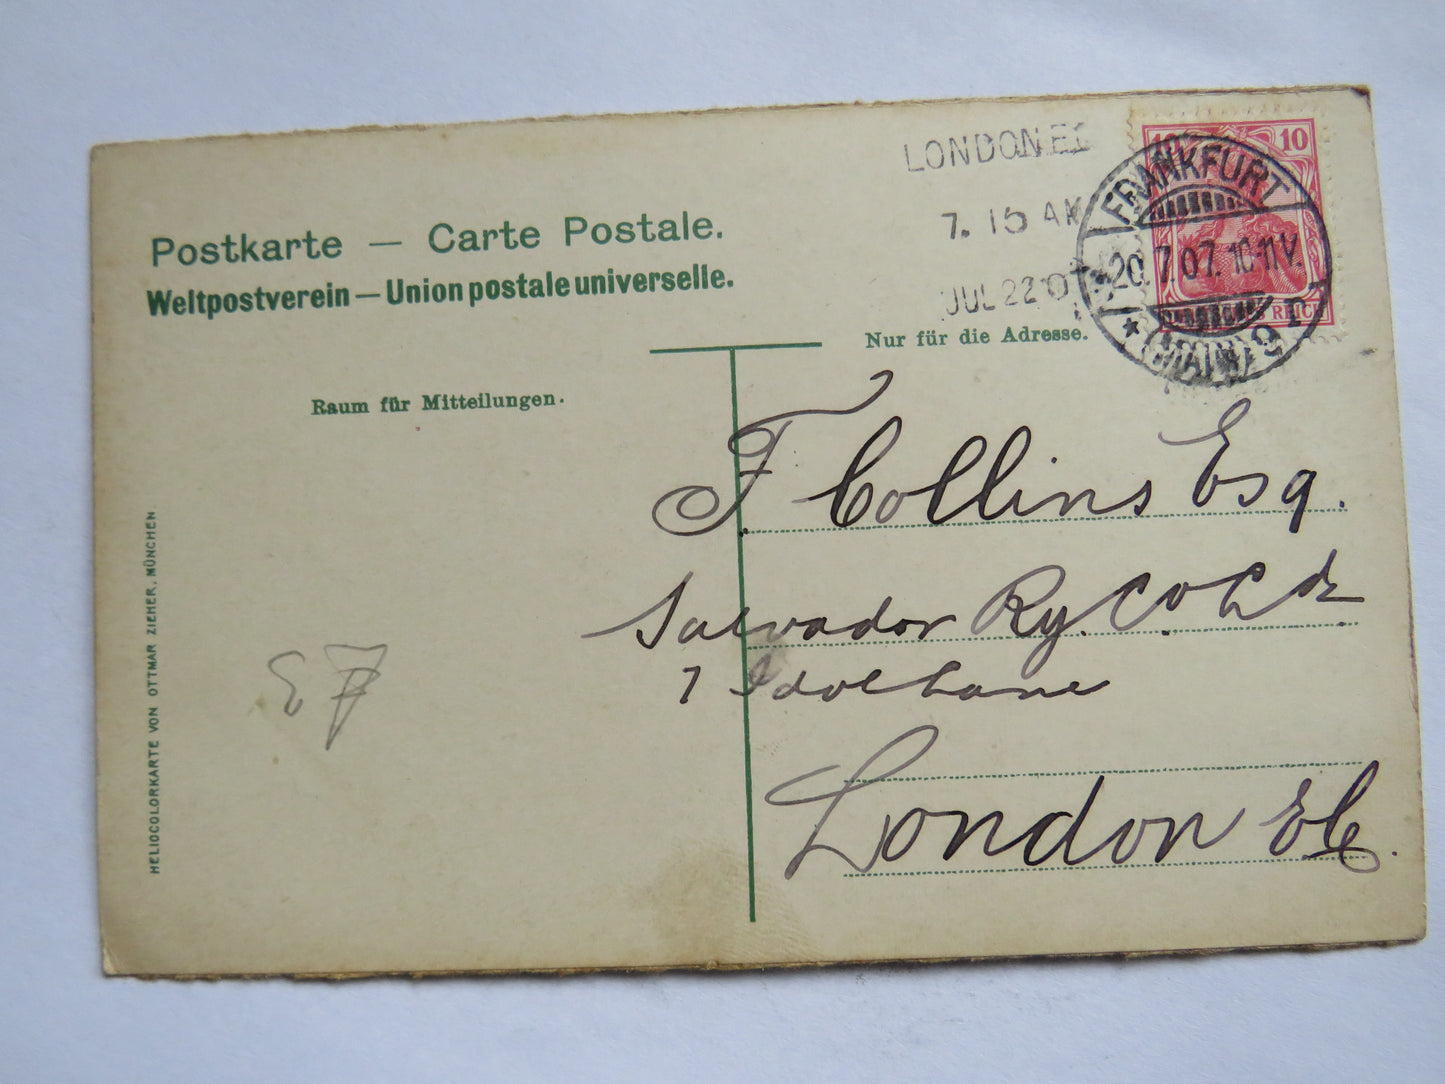 Postkarte — Carte Postale.
Weltpostverein — Union postale universelle.
LONDON E
7. 15 AM
JUL 22 07
FRANKFURT
20. 7. 07. 10-11 V.
* (MAIN) 9 D
10 10
REICH
Nur für die Adresse.
Raum für Mitteilungen.
F. Collins Esq.
Salvador Ry. Co Ld
7 Idol Lane
London EC.
HELIOCOLORKARTE VON OTTMAR ZIEHER, MÜNCHEN